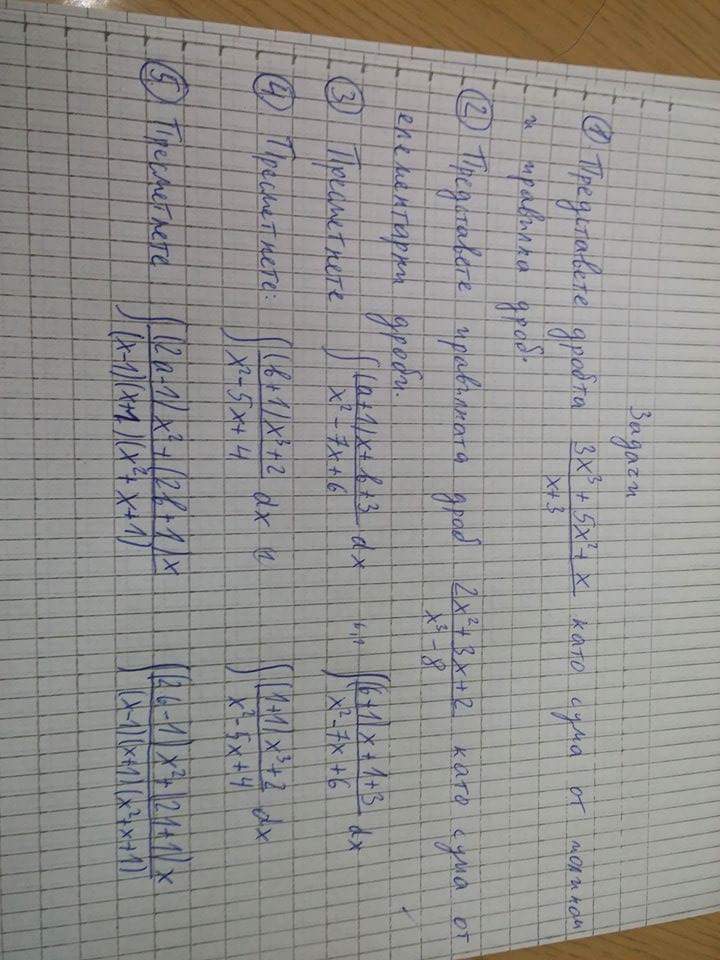 Задачи
① Представете дробта (3x³ + 5x² + x)/(x+3) като сума от многочлен
и правилна дроб.
② Представете правилната дроб (2x² + 3x + 2)/(x³ - 8) като сума от
елементарни дроби.
③ Пресметнете ∫ ((a+1)x + b + 3)/(x² - 7x + 6) dx ∫ ((6+1)x + 1 + 3)/(x² - 7x + 6) dx
④ Пресметнете: ∫ ((b+1)x³ + 2)/(x² - 5x + 4) dx и ∫ ((1+1)x³ + 2)/(x² - 5x + 4) dx
⑤ Пресметнете ∫ ((2a-1)x² + (2b+1)x)/((x-1)(x+1)(x²+x+1)) ∫ ((26-1)x² + (21+1)x)/((x-1)(x+1)(x²+x+1))